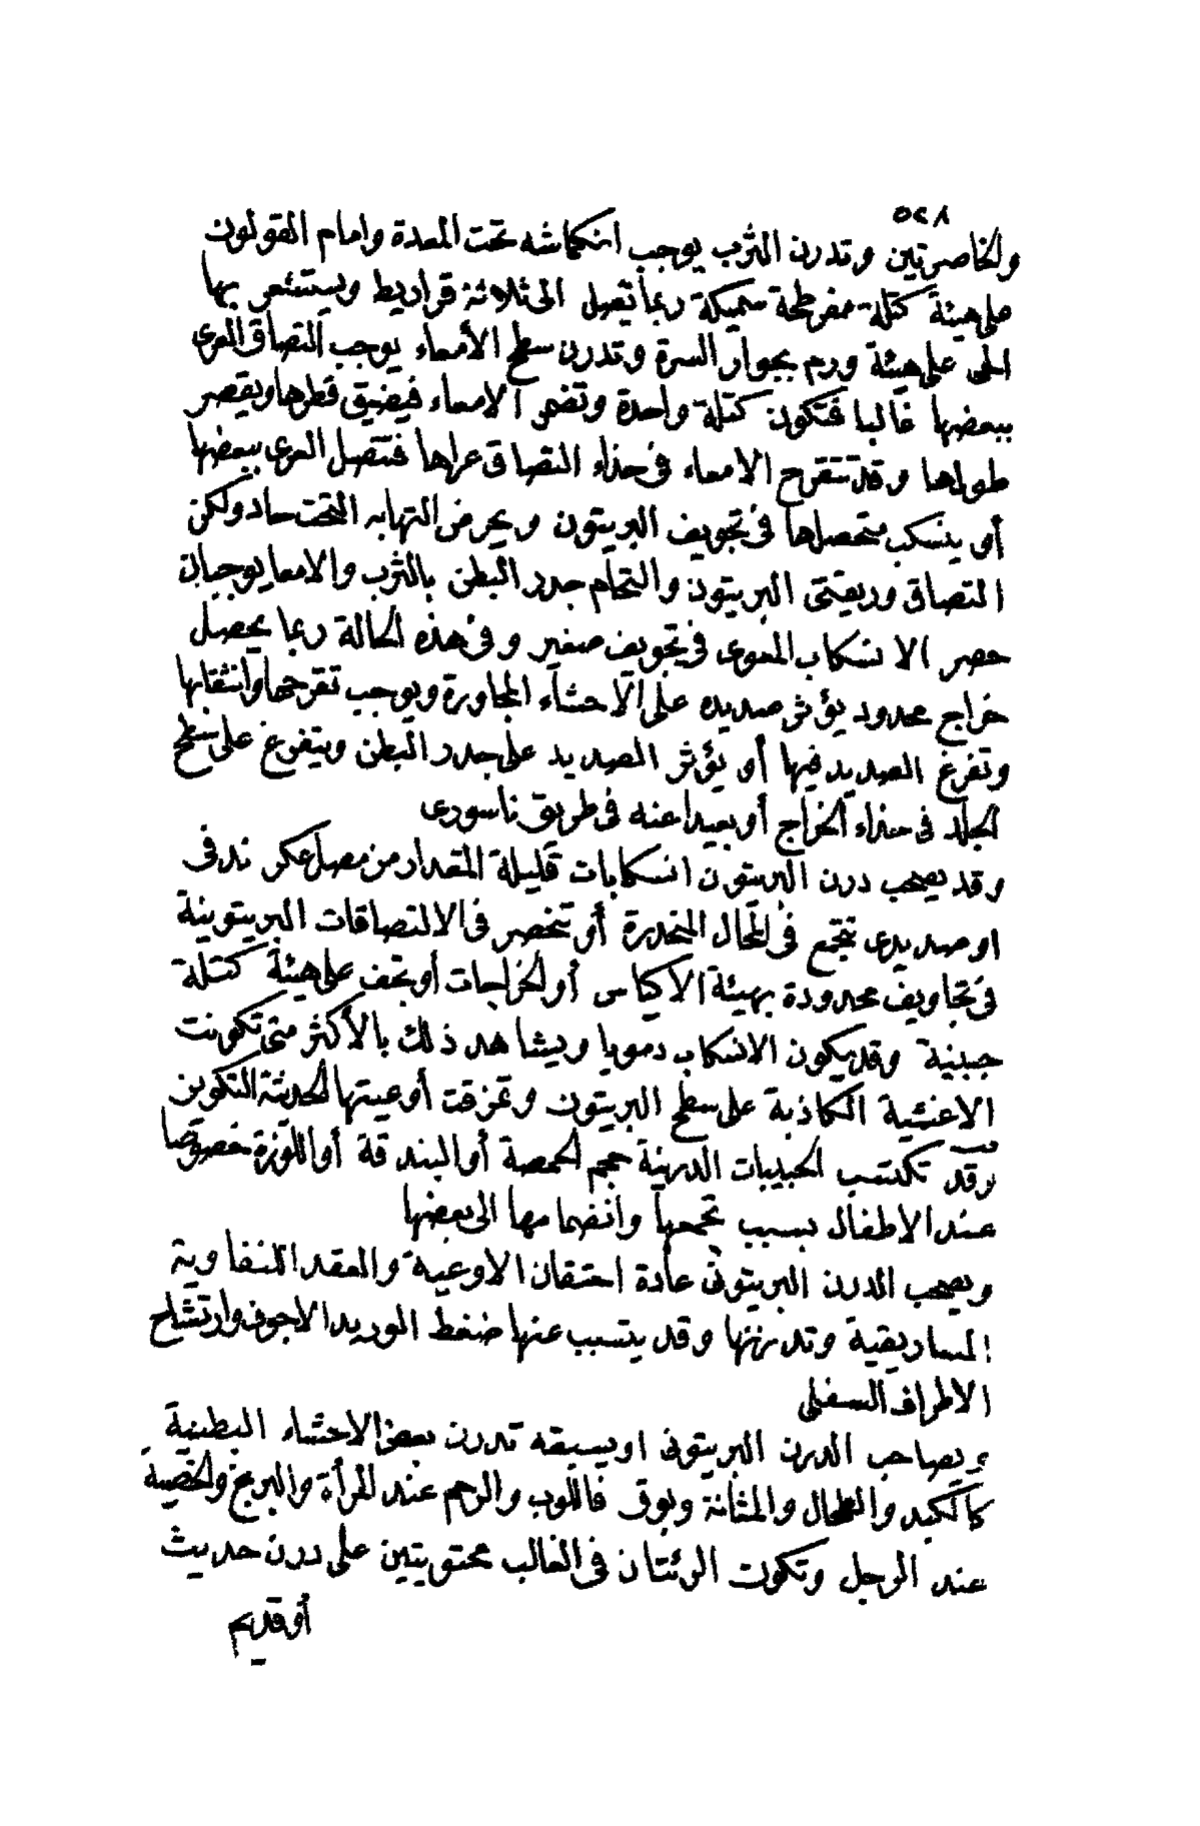 ٥٢٨
والخاصرتين وتدرن الثرب يوجب انكماشه تحت المعدة وامام القولون
على هيئة كتلة مفرطحة سميكة ربما تصل الى ثلاثة قراريط ويستشعر بها
الحى على هيئة ورم بجوار السرة وتدرن سطح الأمعاء يوجب التصاق العرى
ببعضها غالبا فتكون كتلة واحدة وتضمر الامعاء فيضيق قطرها ويقصر
طولها وقد تتقرح الامعاء فى حذاء التصاق عراها فتتصل العرى ببعضها
أو ينسكب متحصلها فى تجويف البريتون ويحرض التهابه التحت حاد ولكن
التصاق وريقتى البريتون والتحام جدر البطن بالثرب والامعا يوجبان
حصر الانسكاب المعوى فى تجويف صغير وفى هذه الحالة ربما يحصل
خراج محدود يؤثر صديده على الاحشاء المجاورة ويوجب تقرحها وانثقابها
وتفرغ الصديد فيها أو يؤثر الصديد على جدر البطن ويتفرغ على سطح
الجلد فى حذاء الخراج أو بعيدا عنه فى طريق ناسورى
وقد يصحب درن البريتون انسكابات قليلة المقدار من مصل عكر ندفى
او صديدى تتجمع فى المحال المنحدرة أو تنحصر فى الالتصاقات البريتونية
فى تجاويف محدودة بهيئة الاكياس أو الخراجات أو تجف على هيئة كتلة
جبنية وقد يكون الانسكاب دمويا ويشاهد ذلك بالأكثر متى تكونت
الاغشية الكاذبة على سطح البريتون وتمزقت أوعيتها الحديثة التكوين
وقد تكتسب الحبيبات الدرنية حجم الحمصة أو البندقة أو اللوزة خصوصا
عند الاطفال بسبب تجمعها وانضمامها الى بعضها
ويصحب الدرن البريتونى عادة احتقان الاوعية والعقد اللنفاوية
المساريقية وتدرنها وقد يتسبب عنها ضغط الوريد الاجوف وارتشاح
الاطراف السفلى
ويصاحب الدرن البريتونى او يسبقه تدرن بعض الاحشاء البطنية
كالكبد والطحال والمثانة وبوق فاللوب والرحم عند المرأة والبربخ والخصية
عند الرجل وتكون الرئتان فى الغالب محتويتين على درن حديث
أو قديم